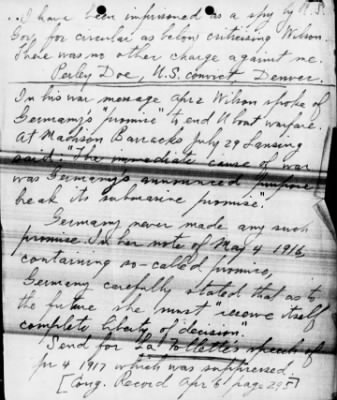 ..I have been imprisoned as a spy by U.S.
Gov, for circular as below criticising Wilson.
There was no other charge against me.
Perley Doe, U.S. convict, Denver.
In his war message Apr 2 Wilson spoke of
Germany's "promise" to end U boat warfare.
At Madison Barracks July 29 Lansing
said: "The immediate cause of war
was Germany's announced purpose
break its submarine promise."
Germany never made any such
promise. In her note of May 4 1916,
containing so-called promise,
Germany carefully stated that as to
the future she must reserve itself
complete liberty of decision."
Send for La Follette's speech of
pr 4 1917 which was suppressed.
[Cong. Record Apr 6 page 295]